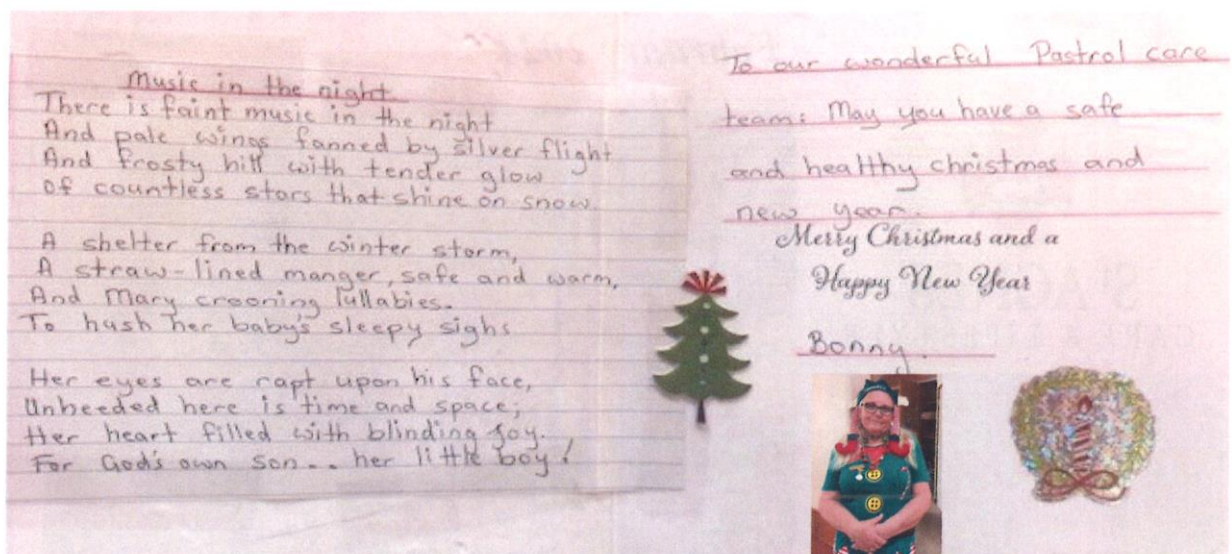 Music in the night
There is faint music in the night
And pale wings fanned by silver flight
And frosty hill with tender glow
of countless stars that shine on snow.
A shelter from the winter storm,
A straw-lined manger, safe and warm,
And Mary crooning lullabies.
To hush her baby's sleepy sighs
Her eyes are rapt upon his face,
Unheeded here is time and space;
Her heart filled with blinding joy.
For God's own son... her little boy!
To our wonderful Pastrol care
team: May you have a safe
and healthy christmas and
new year.
Merry Christmas and a
Happy New Year
Bonny.